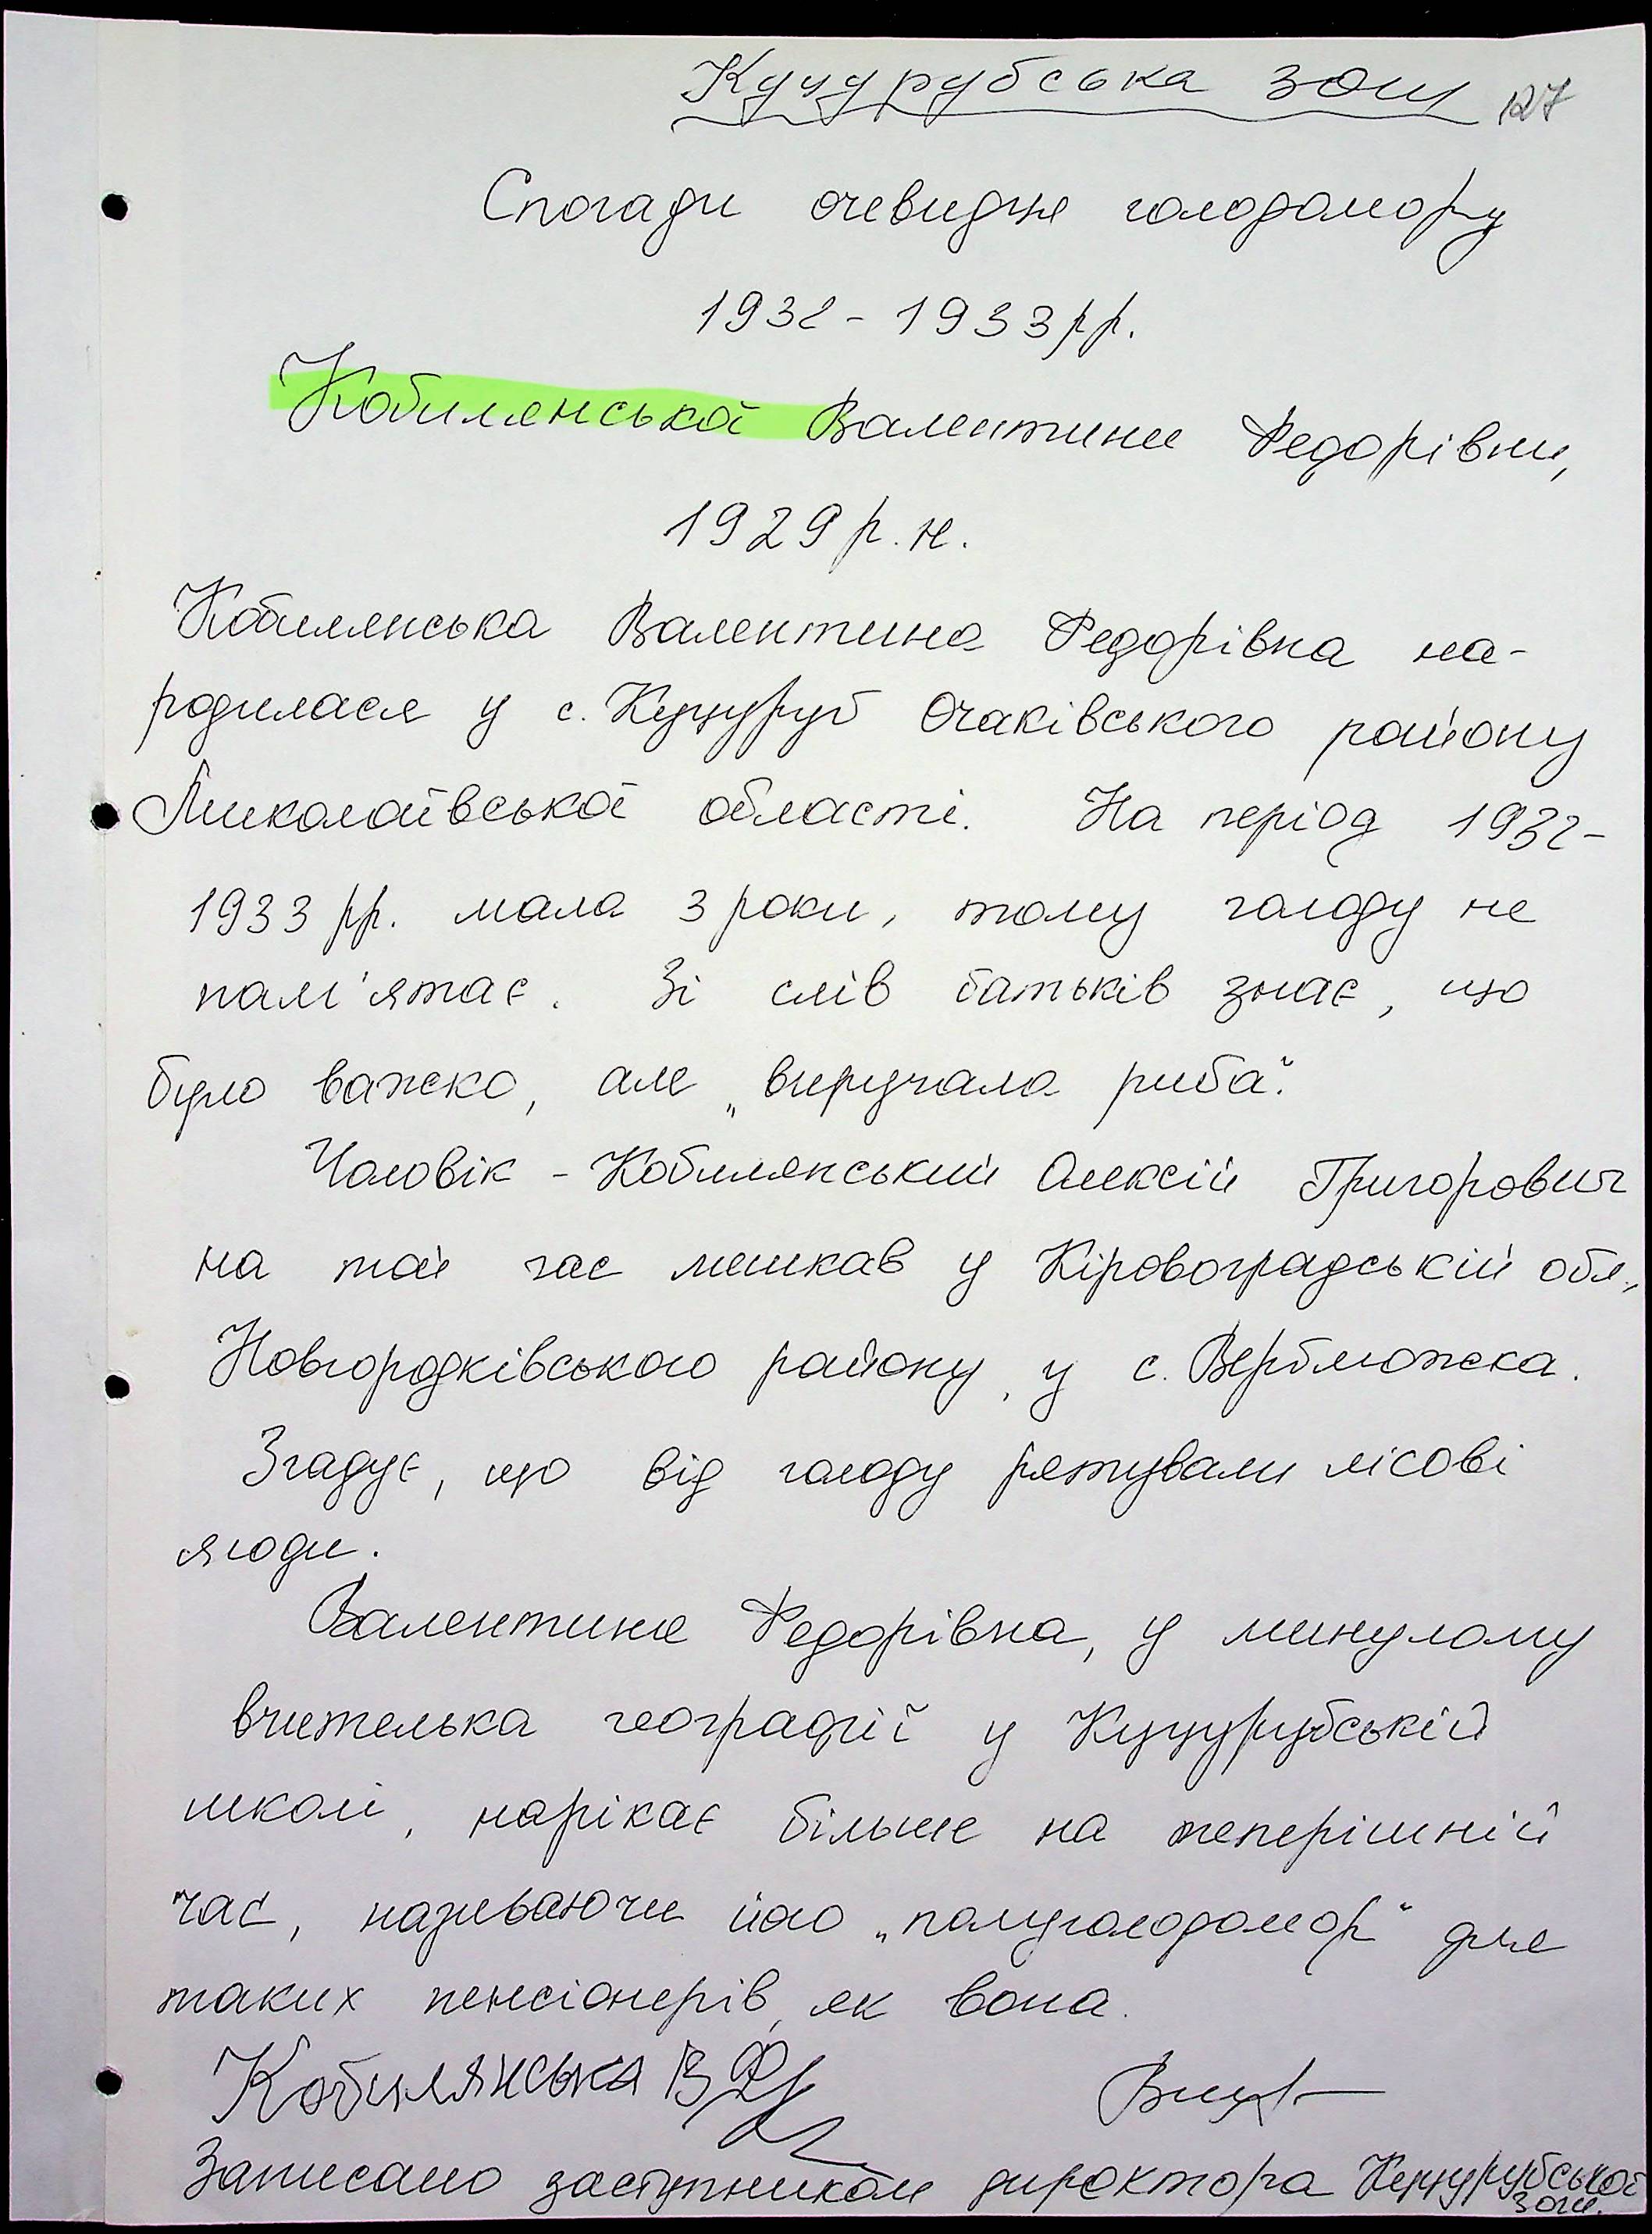 Куцурубська ЗОШ 127
Спогади очевидця голодомору
1932-1933 рр.
Кобилянської Валентини Федорівни,
1929 р. н.
Кобилянська Валентина Федорівна на-
родилася у с. Куцуруб Очаківського району
Миколаївської області. На період 1932-
1933 рр. мала 3 роки, тому голоду не
пам'ятає. Зі слів батьків знає, що
було важко, але „виручала риба“.
Чоловік - Кобилянський Олексій Григорович
на той час мешкав у Кіровоградській обл.,
Новгородківського району, у с. Верблюжка.
Згадує, що від голоду рятували лісові
ягоди.
Валентина Федорівна, у минулому
вчителька географії у Куцурубській
школі, нарікає більше на теперішній
час, називаючи його „полуголодомор“ для
таких пенсіонерів, як вона.
Кобилянська В Ф
Записано заступником директора Куцурубської
ЗОШ.